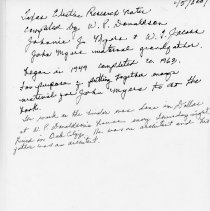 Research Notes
compiled by W. P. Donaldson
Johnnie J. Myers & W. E. Jacobs
John Myers maternal grandfather.
Began in 1949 completed in 1963.
For purpose of putting together many
material for John Myers to do the
book.
The work in the binder was done in Dallas
at W. P. Donaldson's house every Sunday night
lived in Oak Cliff. He was an architect and his
father was an architect.